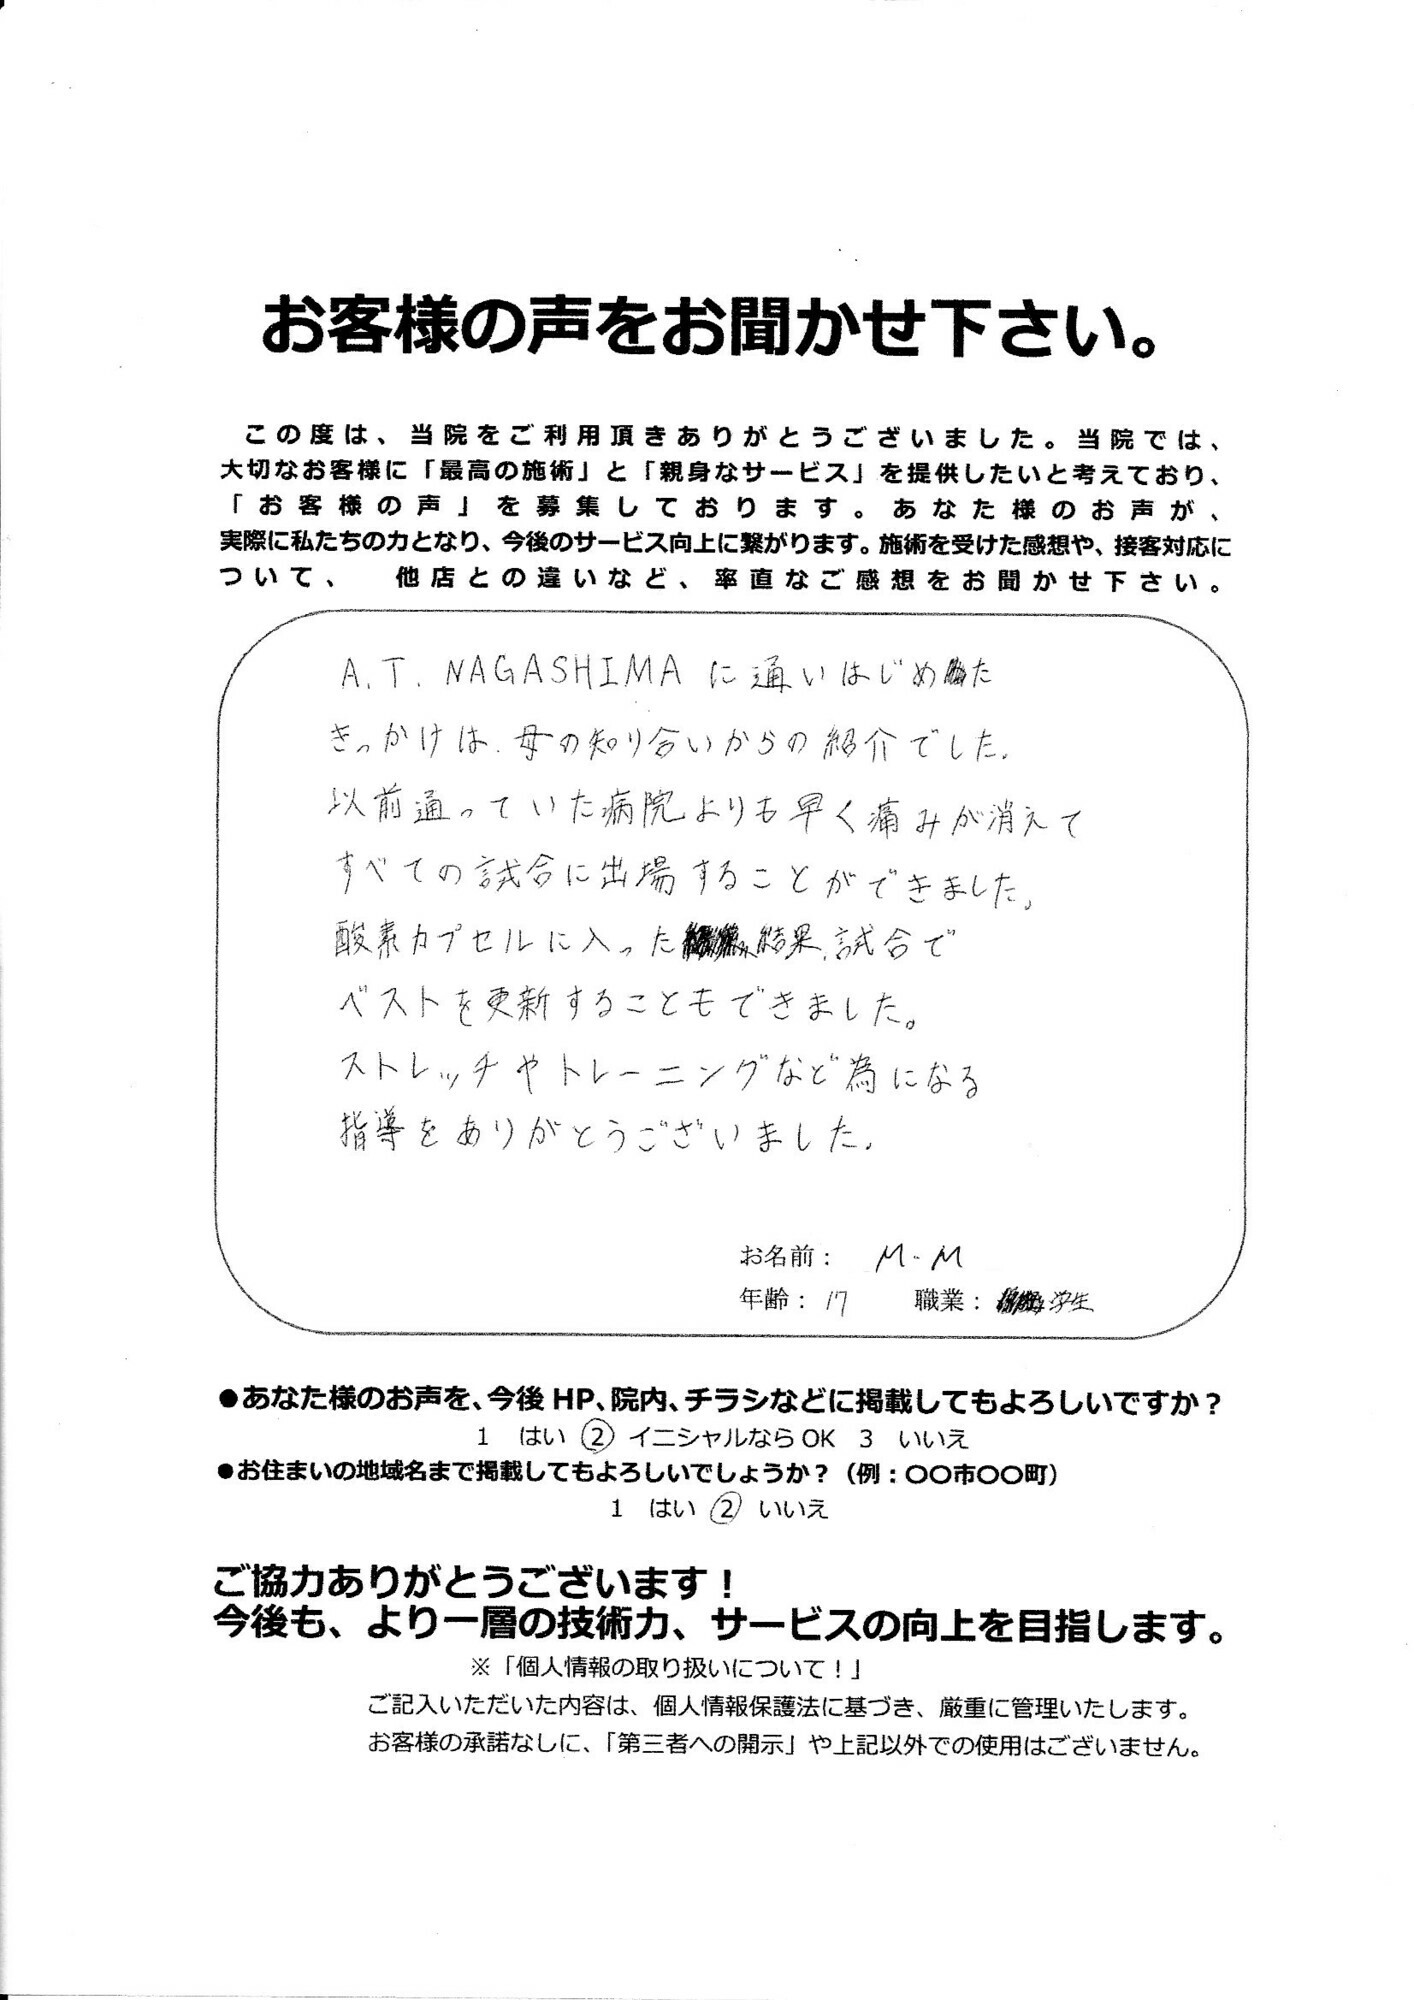 お客様の声をお聞かせ下さい。
この度は、当院をご利用頂きありがとうございました。当院では、
大切なお客様に「最高の施術」と「親身なサービス」を提供したいと考えており、
「お客様の声」を募集しております。あなた様のお声が、
実際に私たちの力となり、今後のサービス向上に繋がります。施術を受けた感想や、接客対応に
ついて、 他店との違いなど、率直なご感想をお聞かせ下さい。
A.T. NAGASHIMAに通いはじめた
きっかけは、母の知り合いからの紹介でした。
以前通っていた病院よりも早く痛みが消えて
すべての試合に出場することができました。
酸素カプセルに入った結果、試合で
ベストを更新することもできました。
ストレッチやトレーニングなど為になる
指導をありがとうございました。
お名前： M.M
年齢：17 職業：学生
●あなた様のお声を、今後 HP、院内、チラシなどに掲載してもよろしいですか？
1 はい ② イニシャルなら OK 3 いいえ
●お住まいの地域名まで掲載してもよろしいでしょうか？（例：〇〇市〇〇町）
1 はい ② いいえ
ご協力ありがとうございます！
今後も、より一層の技術力、サービスの向上を目指します。
※「個人情報の取り扱いについて！」
ご記入いただいた内容は、個人情報保護法に基づき、厳重に管理いたします。
お客様の承諾なしに、「第三者への開示」や上記以外での使用はございません。